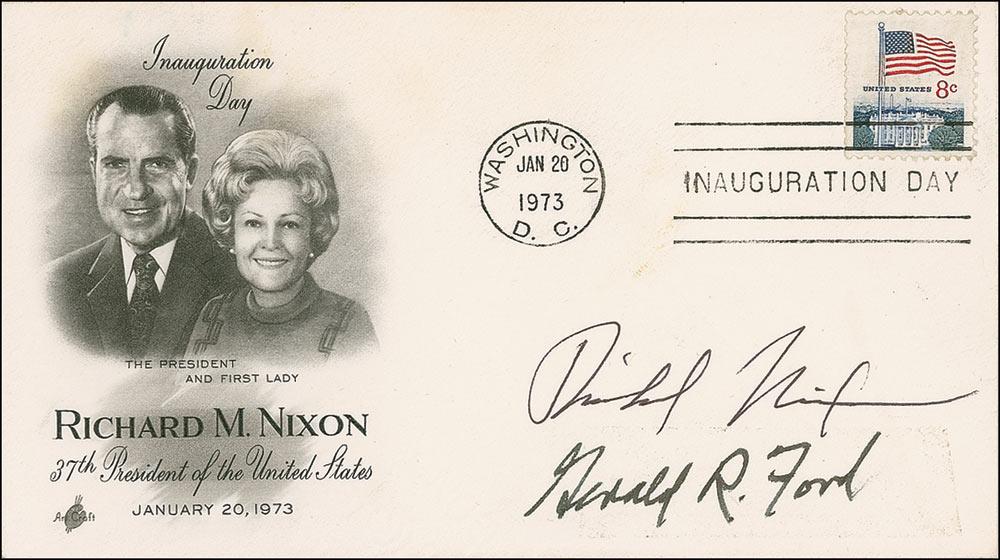 Inauguration
Day
THE PRESIDENT
AND FIRST LADY
RICHARD M. NIXON
37th President of the United States
JANUARY 20, 1973
Art Craft
WASHINGTON
JAN 20
1973
D. C.
UNITED STATES 8c
INAUGURATION DAY
Richard Nixon
Gerald R. Ford